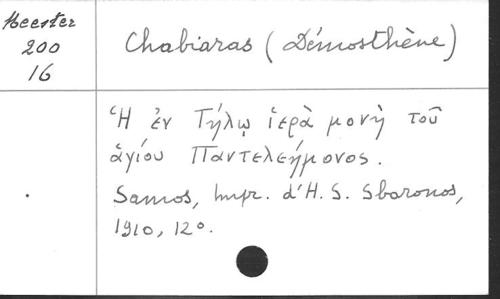 Meester
200
16
Chabiaras (Démosthène)
Ἡ ἐν Τήλῳ ἱερὰ μονὴ τοῦ
ἁγίου Παντελεήμονος.
Samos, Impr. d'H. S. Sbaronos,
1910, 12o.